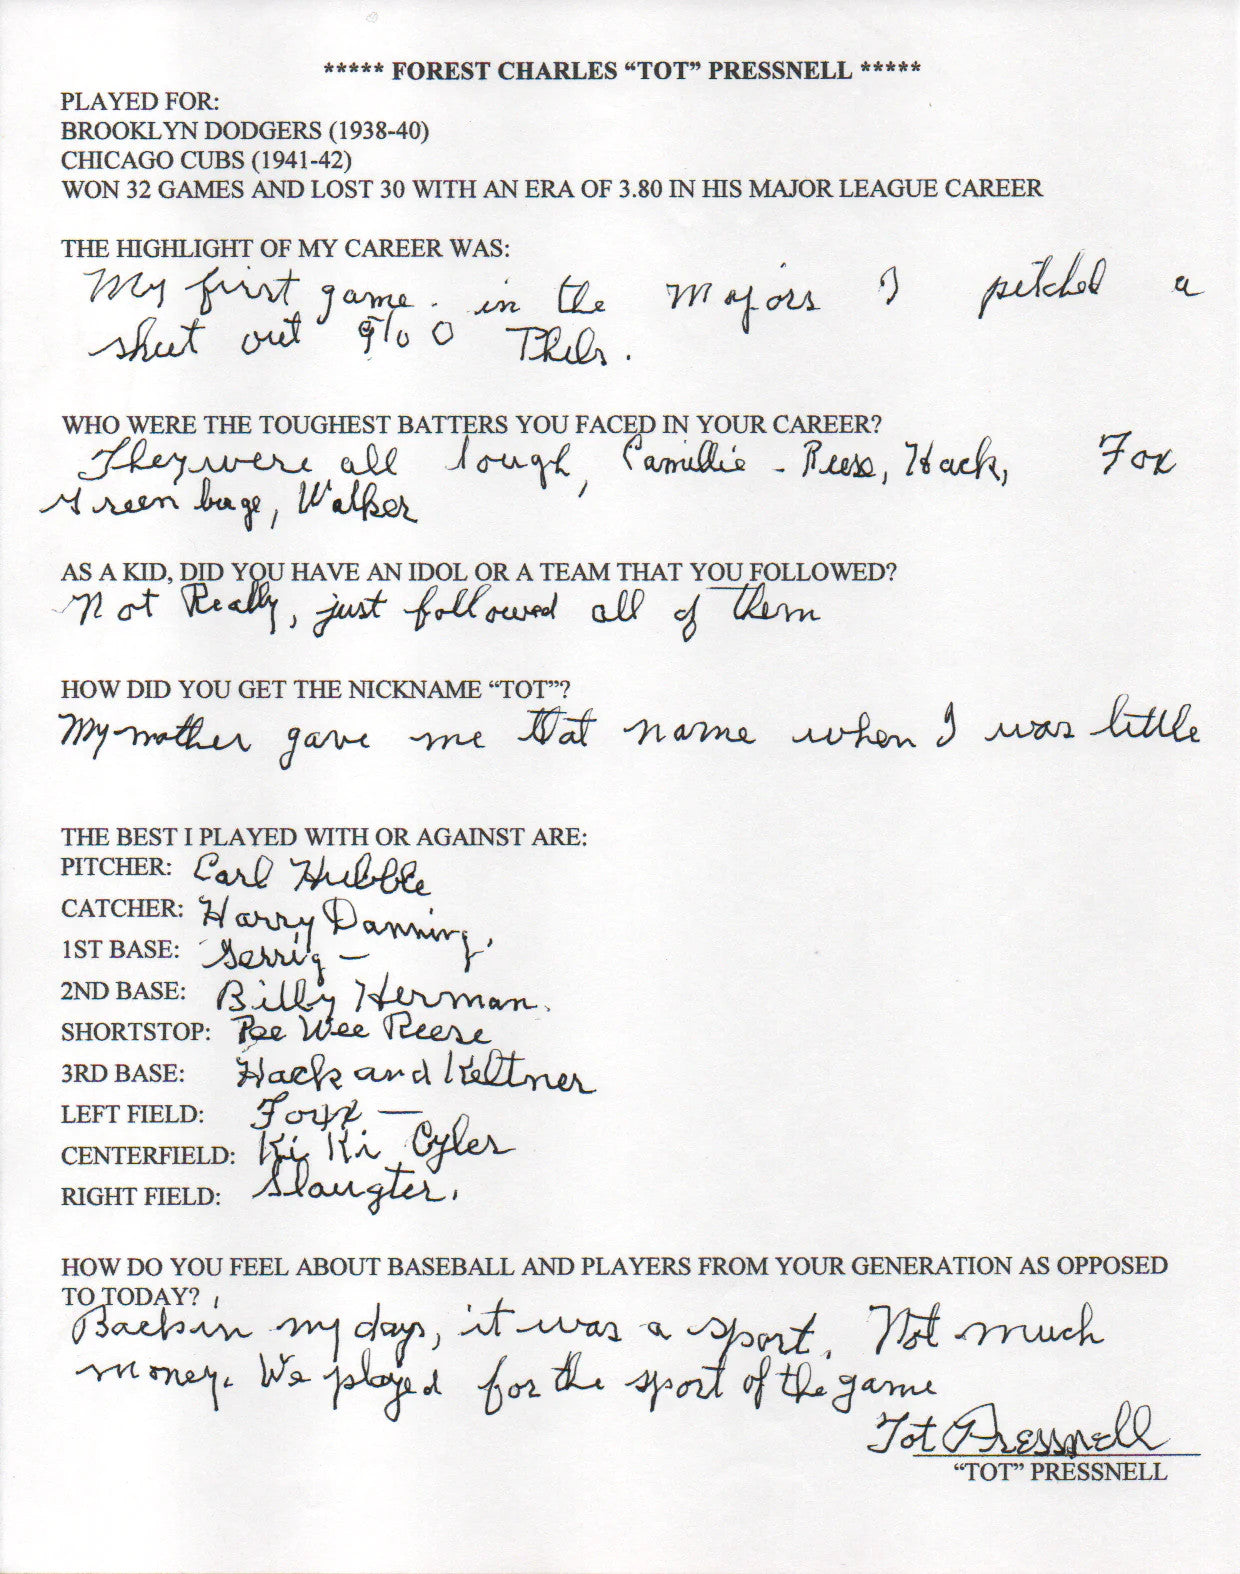 ***** FOREST CHARLES “TOT” PRESSNELL *****
PLAYED FOR:
BROOKLYN DODGERS (1938-40)
CHICAGO CUBS (1941-42)
WON 32 GAMES AND LOST 30 WITH AN ERA OF 3.80 IN HIS MAJOR LEAGUE CAREER
THE HIGHLIGHT OF MY CAREER WAS:
My first game. in the Majors I pitched a
shut out 9 to 0 Phils.
WHO WERE THE TOUGHEST BATTERS YOU FACED IN YOUR CAREER?
They were all tough, Camillie - Reese, Hack, Fox
Green burge, Walker
AS A KID, DID YOU HAVE AN IDOL OR A TEAM THAT YOU FOLLOWED?
Not Really, just followed all of them
HOW DID YOU GET THE NICKNAME “TOT”?
My mother gave me that name when I was little
THE BEST I PLAYED WITH OR AGAINST ARE:
PITCHER: Carl Hubble
CATCHER: Harry Danning,
1ST BASE: Gerrig —
2ND BASE: Billy Herman.
SHORTSTOP: Pee Wee Reese
3RD BASE: Hack and Keltner
LEFT FIELD: Foxx —
CENTERFIELD: Ki Ki Cyler
RIGHT FIELD: Slaugter.
HOW DO YOU FEEL ABOUT BASEBALL AND PLAYERS FROM YOUR GENERATION AS OPPOSED
TO TODAY?
Back in my days, it was a sport. Not much
money. We played for the sport of the game
Tot Pressnell
“TOT” PRESSNELL